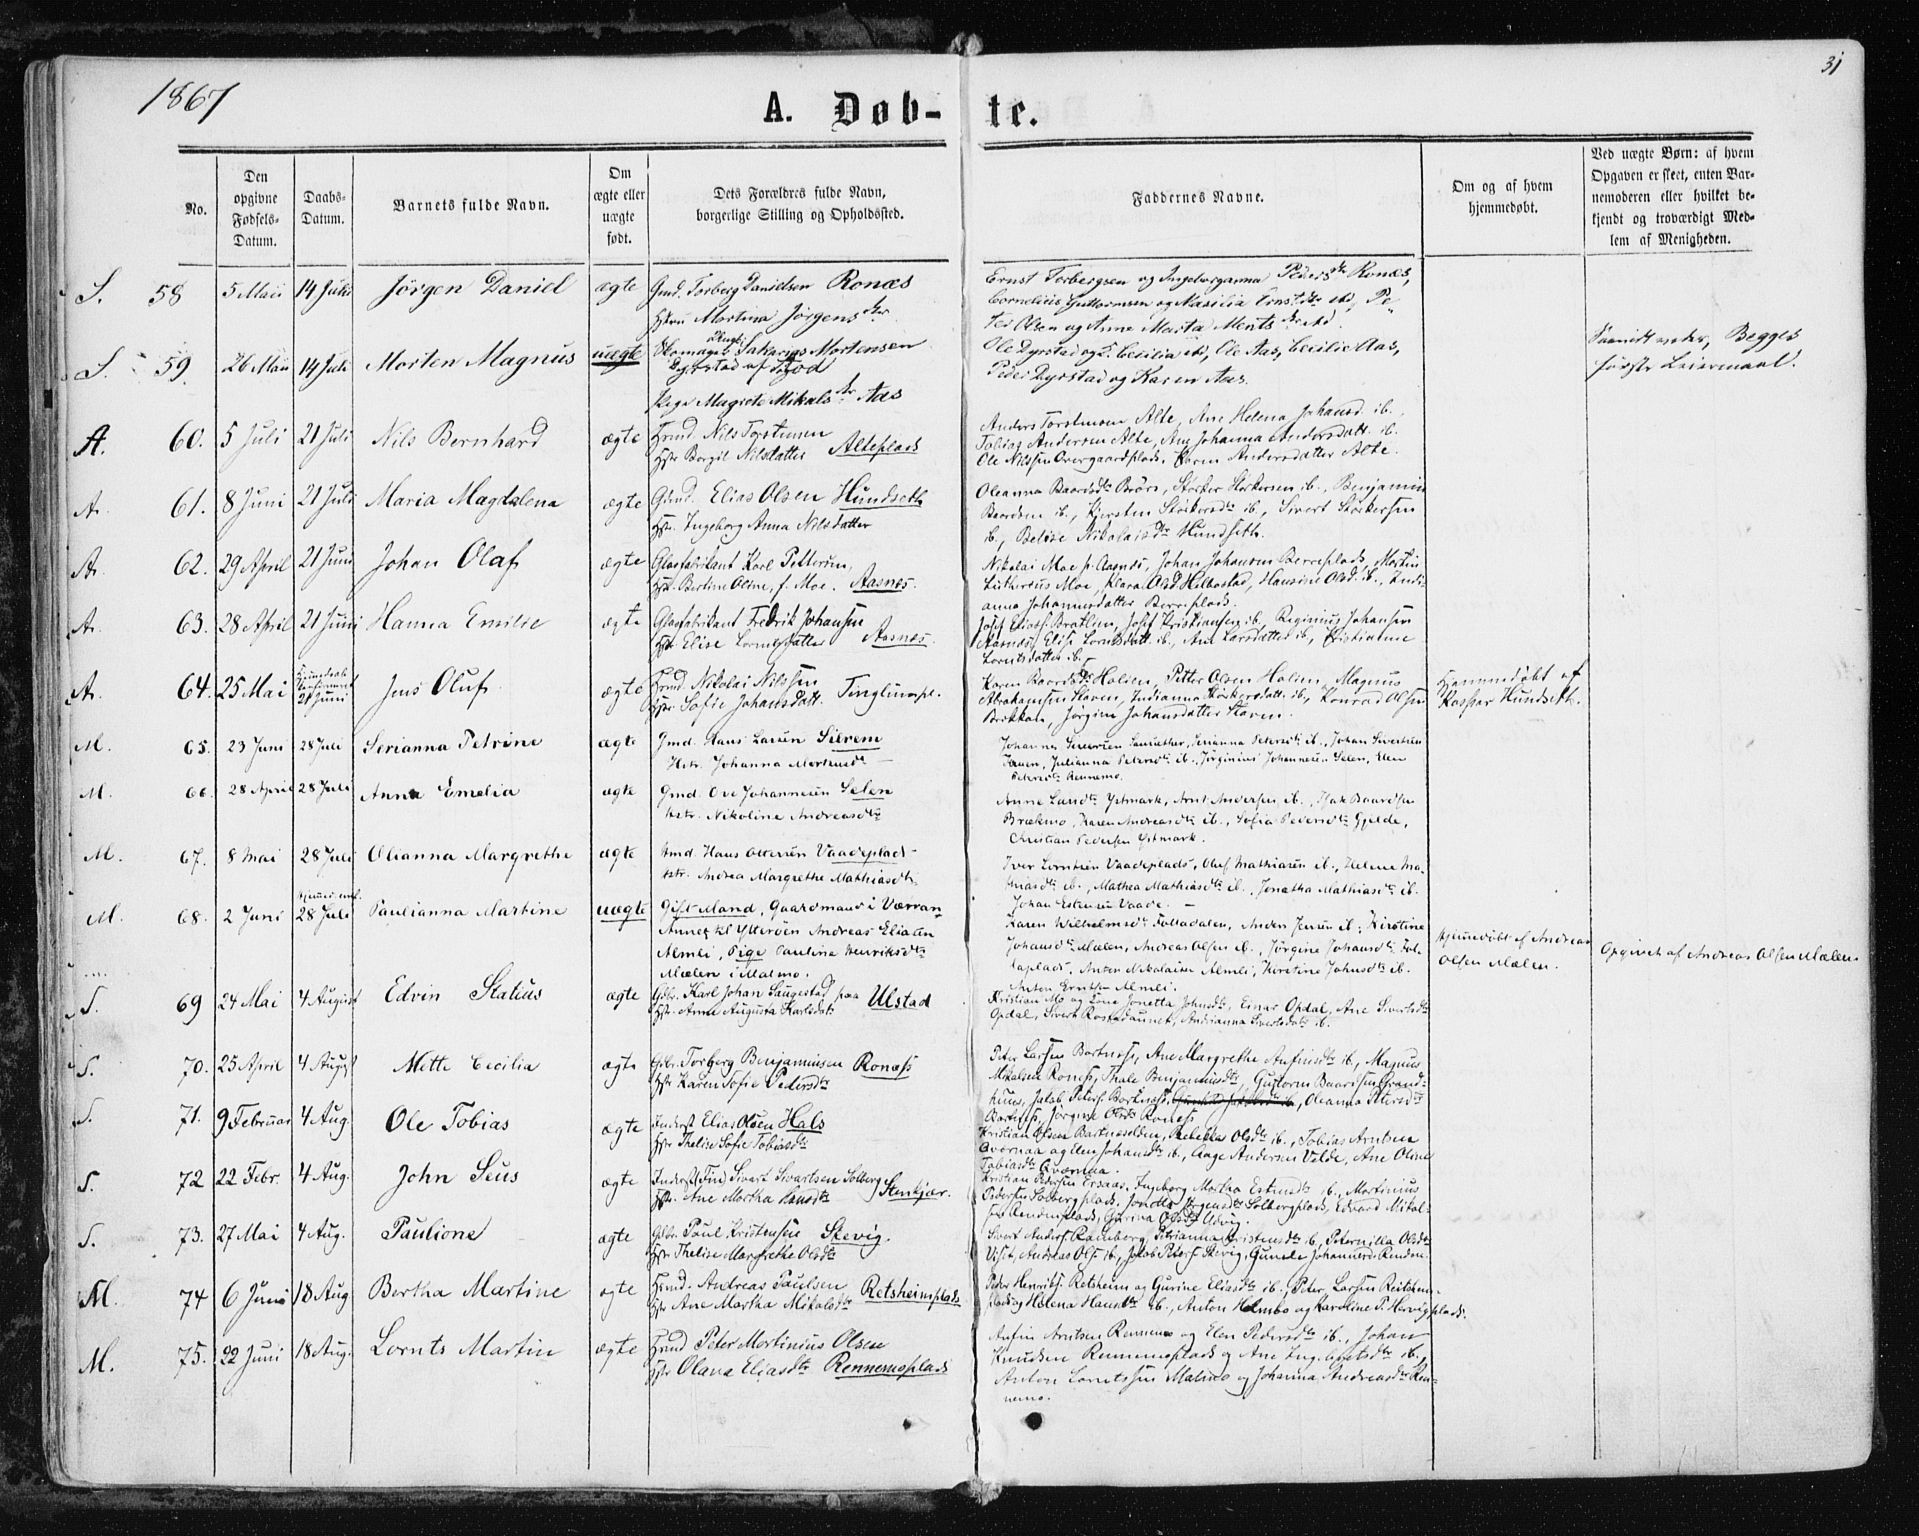 1867
31
A. Døb-
te.
No.
Den opgivne Fødsels-Datum.
Daabs-Datum.
Barnets fulde Navn.
Om ægte eller uægte født.
Dets Forældres fulde Navn, borgerlige Stilling og Opholdssted.
Faddernes Navne.
Om og af hvem hjemmedøbt.
Ved uægte Børn: af hvem Opgaven er skeet, enten Barnemoderen eller hvilket bekjendt og troværdigt Medlem af Menigheden.
S. 58 5 Maii 14 Juli Jørgen Daniel ægte Gmd. Torberg Danielsen Ronæs
Hstru Martina Jørgensdtr
Ernst Torbergsen og Ingeborganna Pedersdtr Ronæs,
Cornelius Guttormsen og Massilia Ernstdtr ibd, Pe-
ter Olsen og Anne Marta Mentsdtr ibd.
S. 59. 26 Maii 14 Juli Morten Magnus uægte Skomager Sakarias Mortensen
Dyrstad af
Pige Magrete Mikalsdtr Aas
Ole Dyrstad og Cecilia ibd, Ole Aas, Cecilie Aas,
Peder Dyrstad og Karen Aas.
Begges
første Leiermaal.
A. 60. 5 Juli 21 Juli Nils Bernhard ægte Hmd. Nils Torstensen
Hstr Borgil Nilsdatter Alteplads
Anders Torstensen Alte, Ane Helena Johansd. ib.,
Tobias Andersen Alte, Ane Johanna Andersdatt. ib.
Ole Nilssen Overgaardplads, Karen Andersdatter Alte.
A. 61. 8 Juni 21 Juli Maria Magdalena ægte Gmd. Elias Olsen Hundseth
Hstr. Ingeborg Anna Nilsdatter
Oleanna Baardsdtr Brørs, Størker Størkersen ib., Benjamin
Baardsen ib., Kjersten Størkersdtr ib., Sivert Størkersen
ib., Belise Nikolaisdtr Hundseth.
A. 62. 29 April 21 Juni Johan Olaf ægte Glasfabrikant Karl Pettersen,
Hst. Bertine Oline, f. Moe. Aasnes.
Nikolai Moe p. Aasnes, Johan Johansen Berreplads, Martin
Lutherus Moe, Klara Olsd Helbostad, Hansine Olsd. ib., Indi-
anna Johannesdatter Berreplads.
A. 63. 28 April 21 Juni Hanna Emilie ægte Glasfabrikant Fredrik Johansen
Hstr Elise Lorntsdatter Aasnes.
Josef Eliass. Bratlien, Josef Kristiansen ib., Reginius Johansen
Aasnes, Elise Lorntsdatt. ib., Ane Larsdatter ib., Kristianne
Lorntsdatter ib.
A. 64. 25 Mai 21 Juni Jens Oluf ægte Hmd. Nikolai Nilssen
Hstr Sofie Johansdatt. Tinglumpl.
Karen Baardsdtr Holien, Petter Olsen Holien, Magnus
Abrahamsen Slaven, Indianna Størkersdatt. ib., Konrad Olsen
Brekken, Jørgine Johansdatter Slaven.
Hjemmedøbt af
Kaspar Hundseth.
M. 65. 23 Juni 28 Juli Serianna Petrine ægte Gmd. Hans Larsen Sierem
Hstr. Johanna Martinsdt
M. 66. 28 April 28 Juli Anna Emelia ægte Gmd. Ove Johannesen Selen
Hstr. Nikoline Andreasdtr
Anne Larsdtr Ystmark, Arnt Andersen ib., Isak Baardsen
Brækmo, Karen Andreasdtr ib., Sofia Pedersdtr Gjelde,
Christian Pedersen Ystmark.
M. 67. 8 Mai 28 Juli Olianna Margrethe ægte Hmd. Hans Oversen Vaadeplads
Hstr. Andrea Margrethe Mathiasdtr.
Iver Lorntsen Vaadeplads, Oluf Mathiasen ib., Helene Ma-
thiasdt ib., Mathea Mathiasdtr ib., Jonetha Mathiasdtr ib.
Johan Estensen Vaade.
M. 68. 2 Juni 28 Juli Paulianna Martine uægte Gift Mand, Gaardmand i Værran-
Annex til Ytterøen Andreas Eliasen
Almli, Pige Paulina Henriksdtr
Mælen i Malmo.
Karen Wilhelmsdtr Folladalen, Anders Jensen ib., Kirstine
Johansdtr Mælen, Andreas Olsen ib., Jørgine Johansdtr Fol-
laplads, Anton Nikolaisen Almli, Kirstine Johnsdtr ib.
Anton Erntsen Almli.
Hjemmedøbt af Andreas
Olsen Mælen.
Opgivet af Andreas Olsen Mælen.
S. 69 24 Mai 4 August Edvin Statius ægte Gdbr. Karl Johan Saugestad paa Ulstad
Hst. Anne Augusta Karlsdtr
Kristian Mo og Kone Jonetta Johnsdtr, Einar Opdal, Ane Sivertsdtr
Opdal, Sivert Rostadaunet, Andrianna Sivertsdtr ib.
S. 70. 25 April 4 August Mette Cecilia ægte Gdbr. Torberg Benjaminsen Ronæss
Hstr Karen Sofie Pedersdtr
Peter Larsen Bartnæss, Ane Margrethe Anfinsdtr ib., Magnus
Mikalsen Roness, Thale Benjaminsdtr, Guttorm Baardsen Grand-
huus, Jakob Peters. Bartness, Oleanna Petersdtr
Bartness, Jørgine Olsdtr Roness.
S. 71. 9 Februar 4 Aug. Ole Tobias ægte Inderst Elias Olsen Hals
Hstr Thelise Sofie Tobiasdtr
Kristian Olsen Bartnæseiden, Rebekka Olsdtr ib., Tobias Arntsen
Qværnaa og Elen Johansdtr ib., Aage Andersen Velde, Ane Oline
Tobiasdtr Qværnaa.
S. 72 22 Febr. 4 Aug. John Seus ægte Inderst (Fin) Sivert Sivertsen Solberg
Hst. Ane Martha Larsdtr Stenkjær.
Kristian Petersen Ersaas, Ingeborg Martha Estensdtr ib., Martinius
Petersen Solbergplads, Jonetta Jørgensdtr Solbergplads, Edvard Mikal-
sen Rendenplads, Gurina Olsdtr Udvig.
S. 73. 27 Mai 4 Aug. Pauline ægte Gdbr. Paul Kristensen Skevig.
Hstr Thelise Margrethe Olsdtr
Sivert Anders. Ramberg, Petrianna Kristensdtr ib, Peternilla Olsdtr
Viset, Andreas Ols. ib, Jakob Peters. Skevig, Gunele Johannesd. Renden.
M. 74 6 Juni 18 Aug Bertha Martine ægte Hmd. Andreas Paulsen
Hstr Ane Martha Mikalsdtr Retsheimplads
Peder Henriks. Retsheim og Gurine Eliasdtr ib., Peter Larsen Reitsheim-
plads og Helena Hansdtr ib., Anton Helmbo og Karoline P. Hervigplads.
M. 75. 22 Juni 18 Aug. Lornts Martin ægte Hmd Peter Martinius Olsen
Hstr Olava Eliasdtr Rennemoplads
Anfin Arntsen Rennemo og Elen Pedersdtr ib., Johan
Knudsen Rennemoplads og Ane Ingebretsdtr ib.,
Anton Lorntssen Malmo og Johanna Andreasdtr Ren-
nemo.